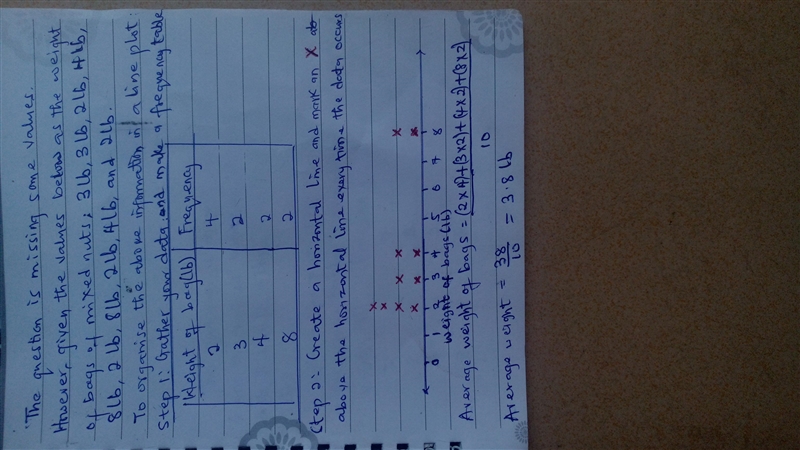 The question is missing some values.
However, given the values below as the weight
of bags of mixed nuts; 3lb, 3lb, 2lb, 4lb,
8lb, 2lb, 8lb, 2lb, 4lb, and 2lb.
To organise the above information in a line plot:
Step 1: Gather your data, and make a frequency table
Weight of bag(lb) Frequency
2 4
3 2
4 2
8 2
Step 2: Create a horizontal line and mark an X
above the horizontal line everytime the data occurs
x
x
x x x x
x x x x
0 1 2 3 4 5 6 7 8
weight of bags(lb)
Average weight of bags = (2x4)+(3x2)+(4x2)+(8x2)
10
Average weight = 38/10 = 3.8 lb